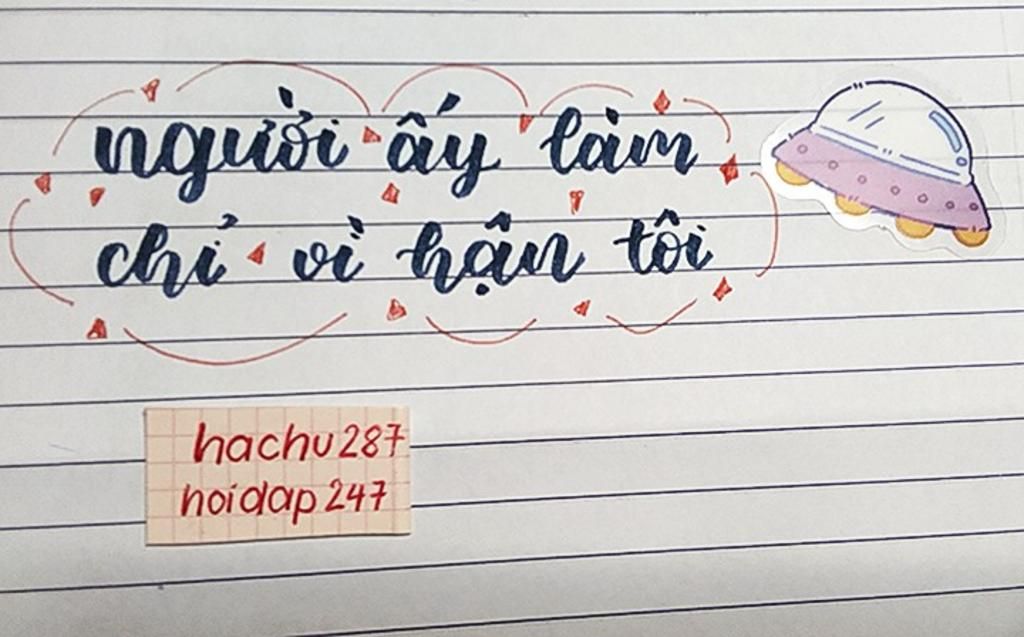 người ấy làm
chỉ vì hận tôi
hachu287
hoidap247